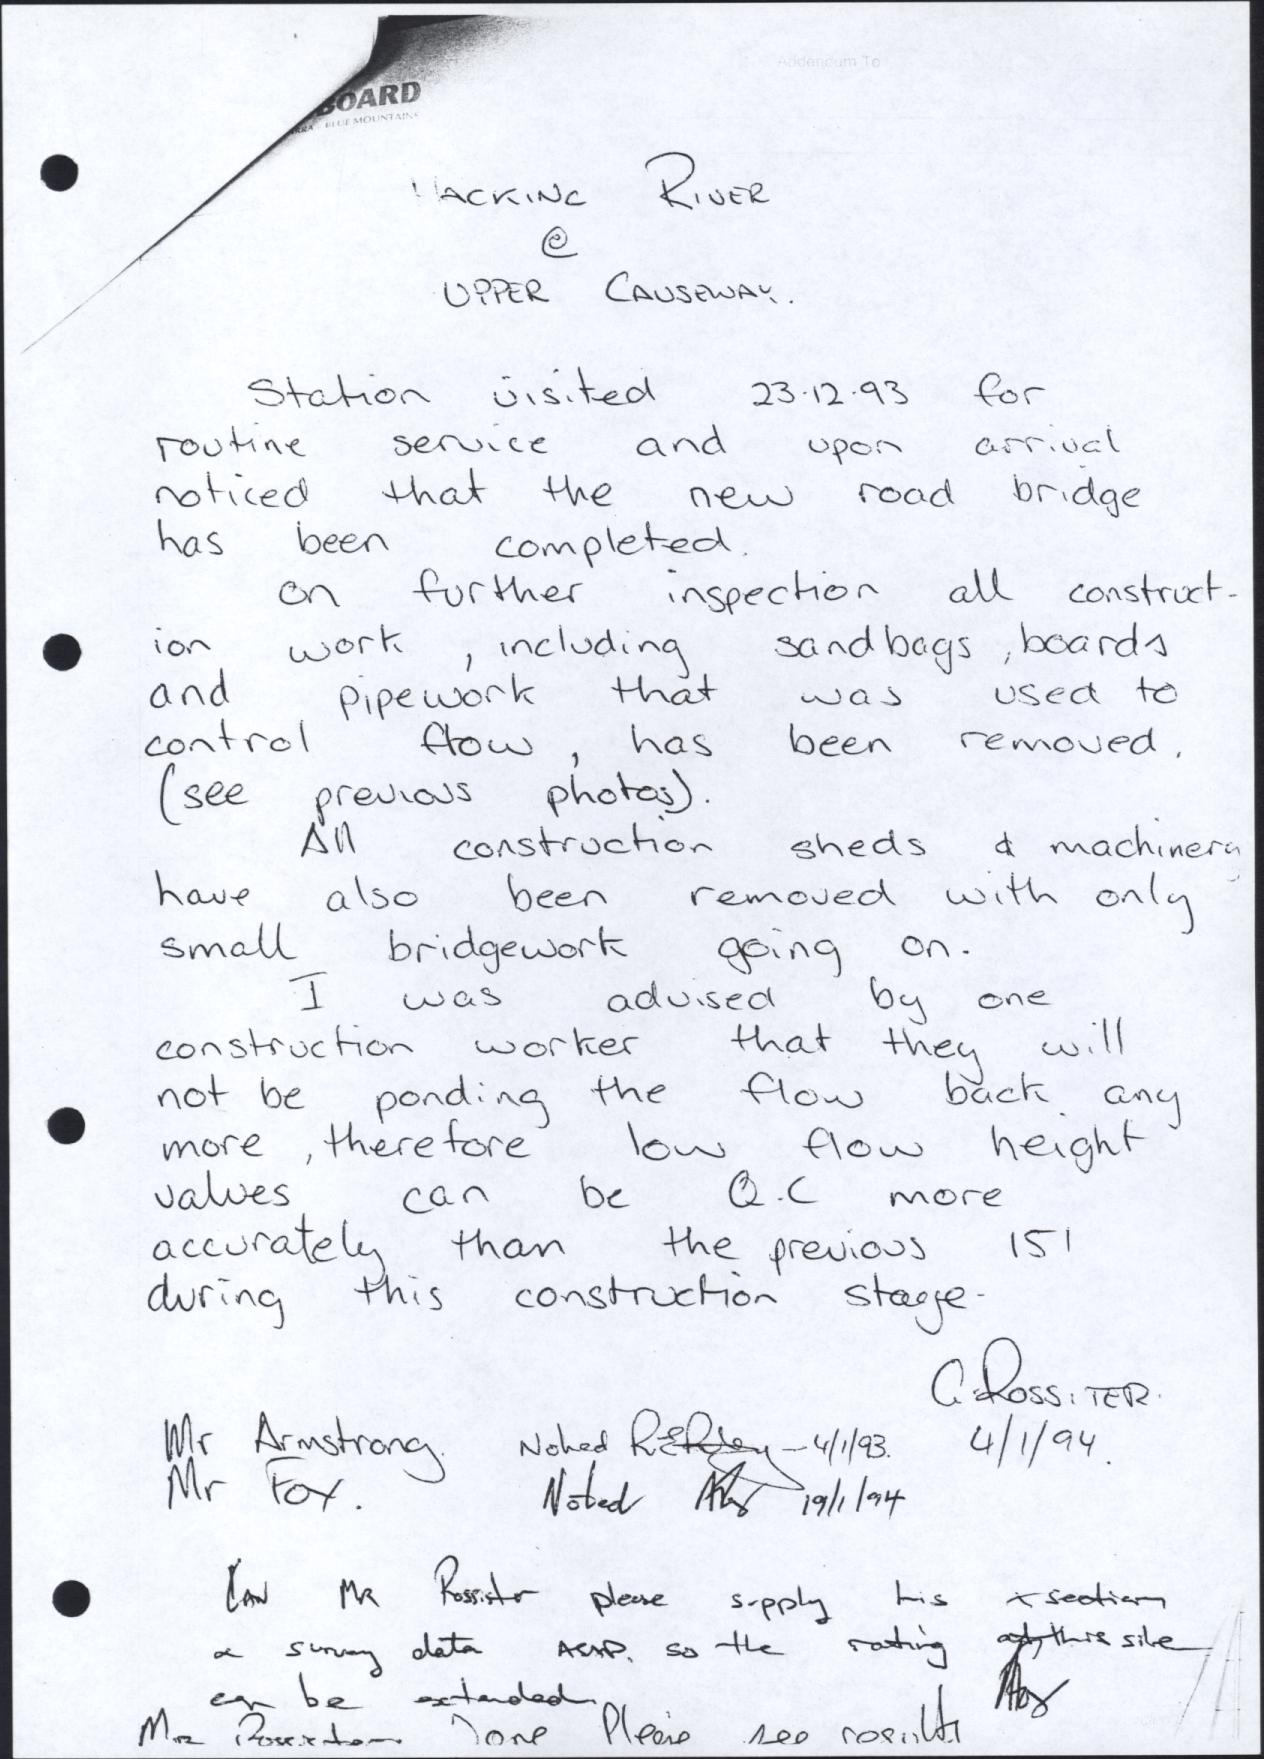 Addendum To
BOARD
BLUE MOUNTAINS
HACKING RIVER
@
UPPER CAUSEWAY.
Station visited 23.12.93 for
routine service and upon arrival
noticed that the new road bridge
has been completed.
On further inspection all construct-
ion work, including sandbags, boards
and pipework that was used to
control flow, has been removed.
(see previous photos).
All construction sheds & machinery
have also been removed with only
small bridgework going on.
I was advised by one
construction worker that they will
not be ponding the flow back any
more, therefore low flow height
values can be Q.C more
accurately than the previous 151
during this construction stage.
G. ROSSITER.
Mr Armstrong. Noted - 4/1/93. 4/1/94.
Mr Fox. Noted 19/1/94
Can Mr Rossiter please supply his x section
& survey data ASAP. so the rating at this site
can be extended.
Mr Rossiter Done Please see results